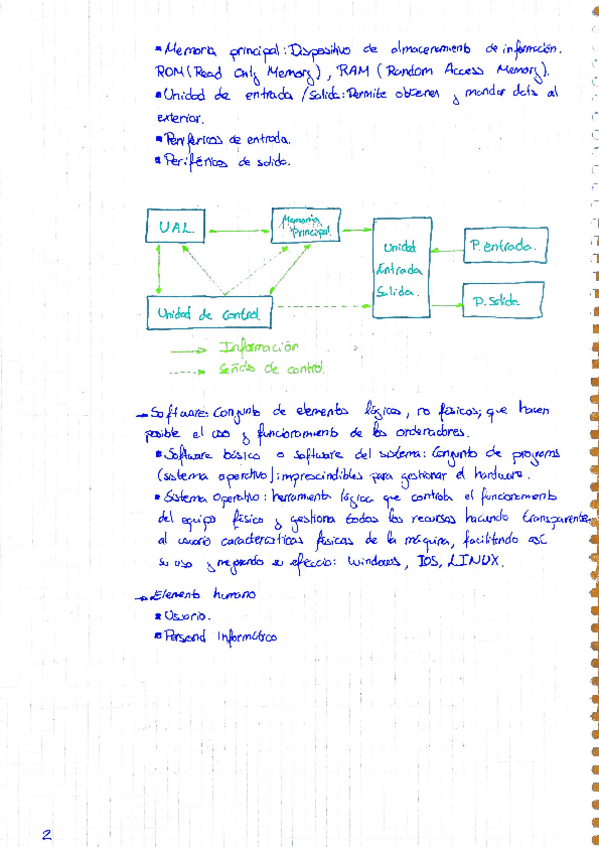 ▪ Memoria principal: Dispositivo de almacenamiento de información.
ROM (Read Only Memory), RAM (Random Access Memory).
▪ Unidad de entrada / salida: Permite obtener y mandar dats al
exterior.
▪ Periféricos de entrada.
▪ Periféricos de salida.
UAL
Memoria
Principal.
Unidad
Entrada
Salida.
P. entrada.
P. Salida
Unidad de Control.
Información
Señales de control.
→ Software: Conjunto de elementos lógicos, no físicos, que hacen
posible el uso y funcionamiento de los ordenadores.
▪ Software básico o software del sistema: Conjunto de programas
(sistema operativo) imprescindibles para gestionar el hardware.
▪ Sistema Operativo: herramienta lógica que controla el funcionamiento
del equipo físico y gestiona todos los recursos haciendo transparentes
al usuario características físicas de la máquina, facilitando así
su uso y mejorando su eficacia: Windows, IOS, LINUX.
→ Elemento humano
▪ Usuario.
▪ Personal Informático
2